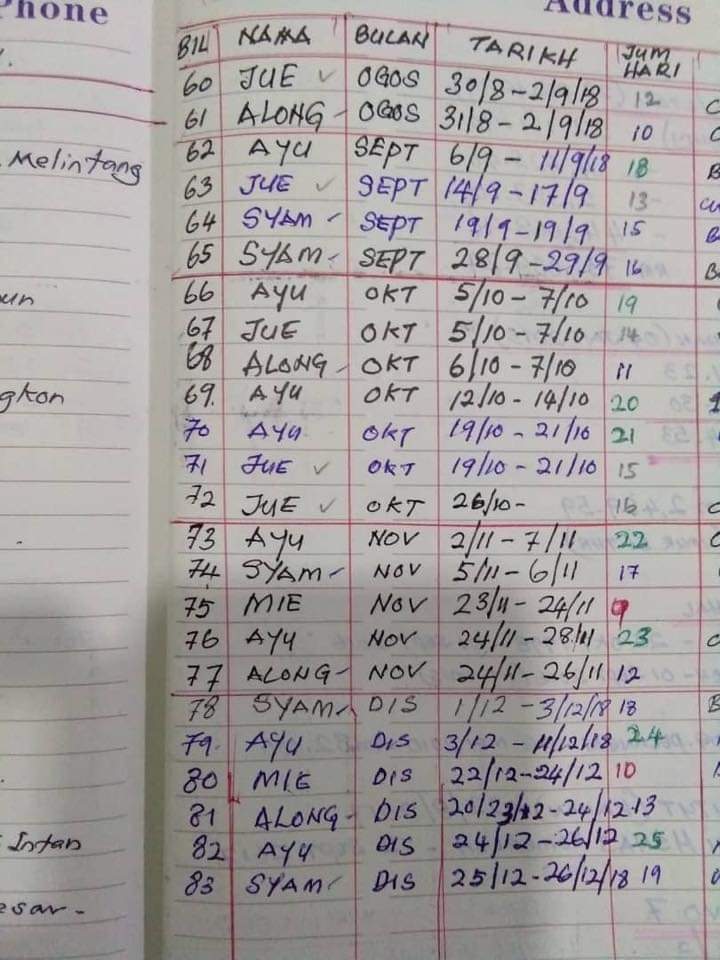 Phone
Address
BIL NAMA BULAN TARIKH JUM HARI
60 JUE ✓ OGOS 30/8 - 2/9/18 12
61 ALONG - OGOS 31/8 - 2/9/18 10
62 AYU SEPT 6/9 - 11/9/18 18
63 JUE ✓ SEPT 14/9 - 17/9 13
64 SYAM - SEPT 19/9 - 19/9 15
65 SYAM - SEPT 28/9 - 29/9 16
66 AYU OKT 5/10 - 7/10 19
67 JUE OKT 5/10 - 7/10 14
68 ALONG - OKT 6/10 - 7/10 11
69. AYU OKT 12/10 - 14/10 20
70 AYU OKT 19/10 - 21/10 21
71 JUE ✓ OKT 19/10 - 21/10 15
72 JUE ✓ OKT 26/10 - 16
73 AYU NOV 2/11 - 7/11 22
74 SYAM - NOV 5/11 - 6/11 17
75 MIE NOV 23/11 - 24/11 9
76 AYU NOV 24/11 - 28/11 23
77 ALONG - NOV 24/11 - 26/11 12
78 SYAM - DIS 1/12 - 3/12/18 18
79. AYU DIS 3/12 - 11/12/18 24
80 MIE DIS 22/12 - 24/12 10
81 ALONG - DIS 20/23/12 - 24/12 13
82 AYU DIS 24/12 - 26/12 25
83 SYAM DIS 25/12 - 26/12/18 19
Melintang
Intan